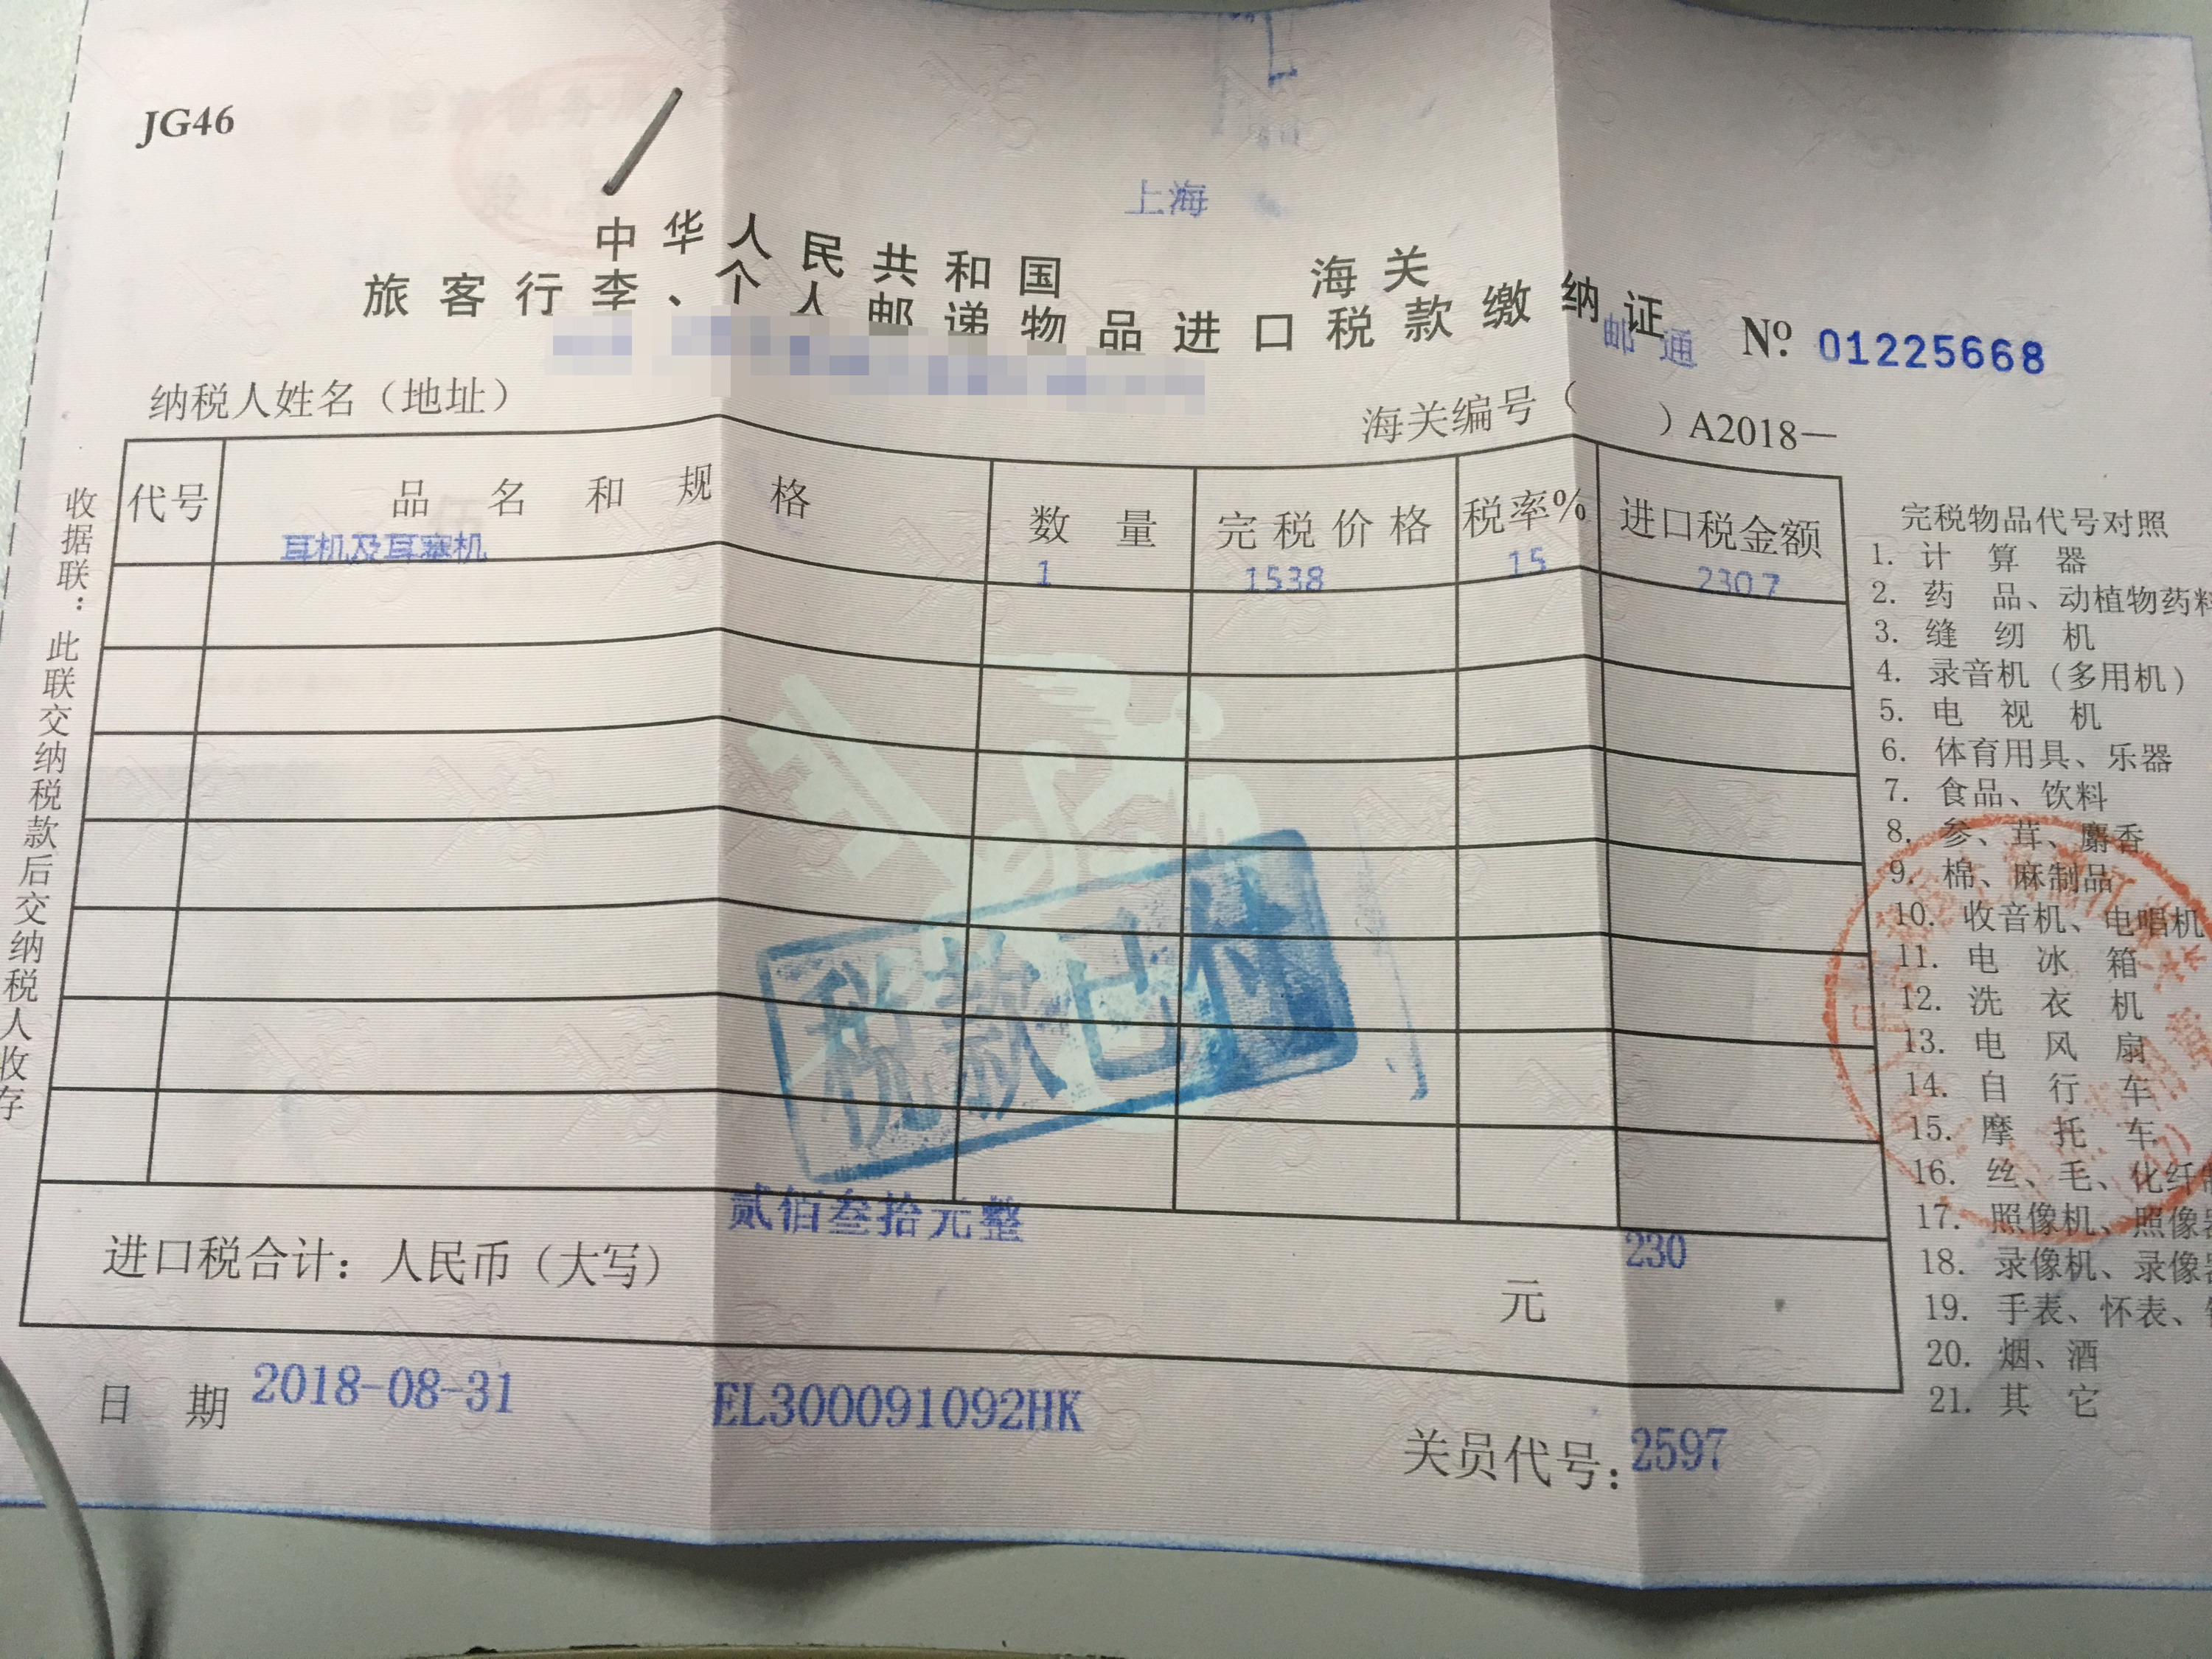 JG46
上海
中华人民共和国 海关
旅客行李、个人邮递物品进口税款缴纳证
邮通
№ 01225668
纳税人姓名（地址）
海关编号（ ）A2018—
代号 品名和规格 数量 完税价格 税率% 进口税金额
耳机及耳塞机 1 1538 15 230.7
税款已付
贰佰叁拾元整
230
进口税合计：人民币（大写） 元
日期 2018-08-31
EL300091092HK
关员代号：2597
收据联：此联交纳税款后交纳税人收存
完税物品代号对照
1. 计算器
2. 药品、动植物药料
3. 缝纫机
4. 录音机（多用机）
5. 电视机
6. 体育用具、乐器
7. 食品、饮料
8. 参、茸、麝香
9. 棉、麻制品
10. 收音机、电唱机
11. 电冰箱
12. 洗衣机
13. 电风扇
14. 自行车
15. 摩托车
16. 丝、毛、化纤制
17. 照像机、照像器
18. 录像机、录像器
19. 手表、怀表、
20. 烟、酒
21. 其它